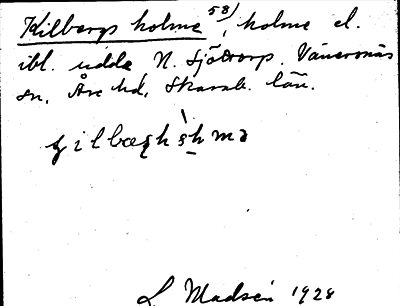 Kilbergs holme 58), holme el.
ibl. udde N. Sjötorp. Vänersnäs
sn, Åse hd, Skarab. län.
L. Madsén 1928